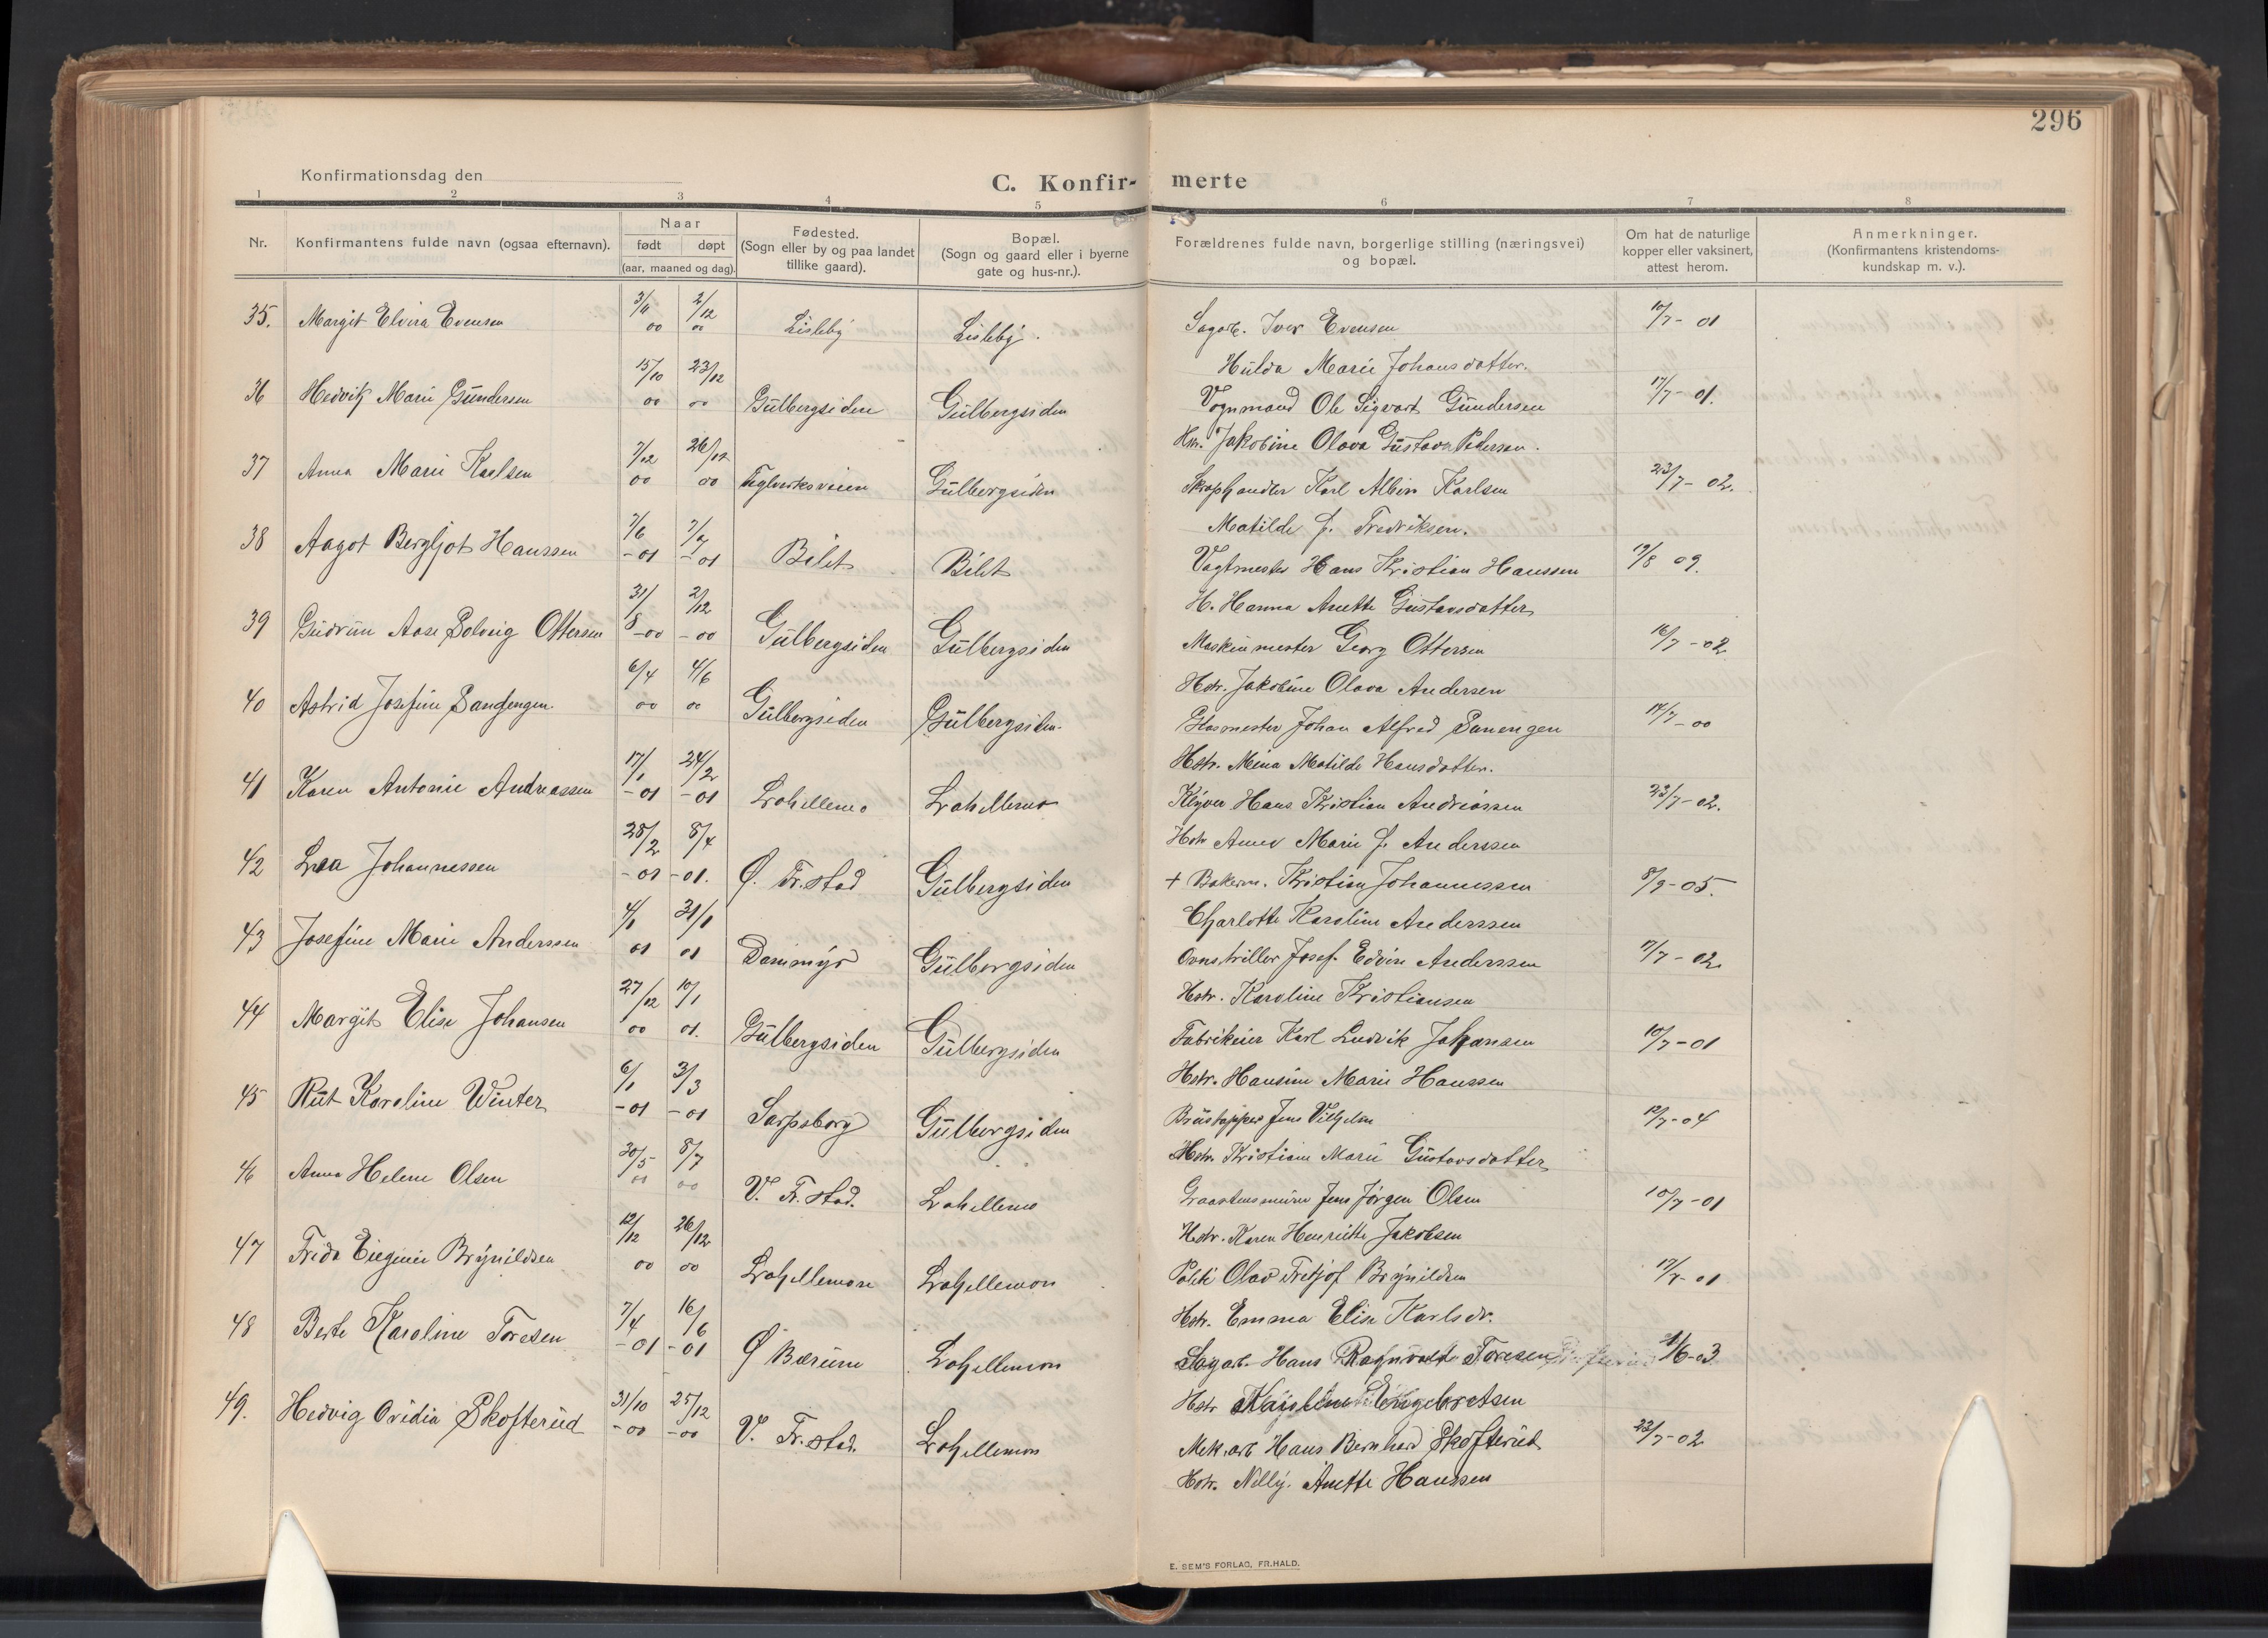 296
Konfirmationsdag den
C. Konfir- merte
1 2 3 4 5 6 7 8
Nr. Konfirmantens fulde navn (ogsaa efternavn). Naar født døpt (aar, maaned og dag). Fødested. (Sogn eller by og paa landet tillike gaard). Bopæl. (Sogn og gaard eller i byerne gate og hus-nr.). Forældrenes fulde navn, borgerlige stilling (næringsvei) og bopæl. Om hat de naturlige kopper eller vaksinert, attest herom. Anmerkninger. (Konfirmantens kristendoms-kundskap m. v.).
35. Margit Elvira Evensen 3/11 00 2/12 00 Lisleby Lisleby. Sagarb. Iver Evensen 10/7 - 01
Hulda Marie Johansdatter.
36 Hedvik Marie Gundersen 15/10 00 23/12 00 Gulbergsiden Gulbergsiden Vognmand Ole Sigvart Gundersen 17/7 - 01.
Hu. Jakobine Olava Gustava Pedersen.
37 Anna Marie Karlsen 7/12 00 26/12 00 Teglverksveien Gulbergsiden Skraphandler Karl Albin Karlsen 23/7 - 02.
Matilde f. Fredriksen.
38 Aagot Bergljot Hanssen 7/6 - 01 7/7 - 01 Bilet Bilet Vagtmester Hans Kristian Hanssen 19/8 09.
H. Hanna Anette Gustavsdatter
39 Gudrun Aase Solveig Ottersen 31/8 - 00 2/12 - 00 Gulbergsiden Gulbergsiden Maskinmester Georg Ottersen 16/7 - 02
Hstr. Jakobine Olava Andersen
40 Astrid Josefine Sandengen 6/4 00 4/6 00 Gulbergsiden Gulbergsiden. Glasmester Johan Alfred Sanengen 17/7 - 00
Hstr. Mina Matilde Hansdatter.
41 Karen Antonie Andreassen 17/1 - 01 24/2 - 01 Trosvik Hans Kristian Andreassen 23/7 - 02.
Hstr Anna Marie f. Anderssen
42 Lea Johannessen 28/2 - 01 8/4 - 01. Ø. Fr.stad Gulbergsiden + Bakerm. Kristian Johannessen 8/9 - 05.
Charlotte Karoline Anderssen
43 Josefine Marie Anderssen 4/1 01 31/1 01 Dammyr Gulbergsiden Josef Edvin Anderssen 17/7 - 02
Hstr. Karoline Kristiansen
44 Margit Elise Johansen 27/12 00 10/1 01. Gulbergsiden Gulbergsiden Fabrikeier Karl Ludvik Johansen 10/7 - 01
Hstr. Hansine Marie Hanssen
45 Rut Karoline Winter 6/1 - 01 3/3 - 01 Sarpsborg Gulbergsiden Brustapper Jens Vilhelm 12/7 - 04
Hstr. Kristiane Marie Gustavsdatter
46 Anna Helene Olsen 30/5 8/7 00 V. Fr.stad. Lahellemo Graastensmurer Jens Jørgen Olsen 10/7 - 01
Hstr. Karen Henriette Jakobsen
47 Frida Eugenie Brynildsen 12/12 00 26/12 00 Lahellemon Lahellemon Politi Olav Fritjof Brynildsen 17/7 - 01
Hstr. Emma Elise Karlsdr.
48 Berte Karoline Toresen 7/4 - 01 16/6 - 01 Ø Bærum Lahellemon Sagarb. Hans Ragnvald Toresen 1/6 - 03
Hstr Engebretsen
49. Hedvig Ovidia Skofterud 31/10 - 00 25/12 - 00 V. Fr.stad. Lahellemon Mek. arb Hans Bernhard Skofterud 23/7 - 02
Hstr. Nelly Anette Hanssen
E. SEM'S FORLAG, FR.HALD.